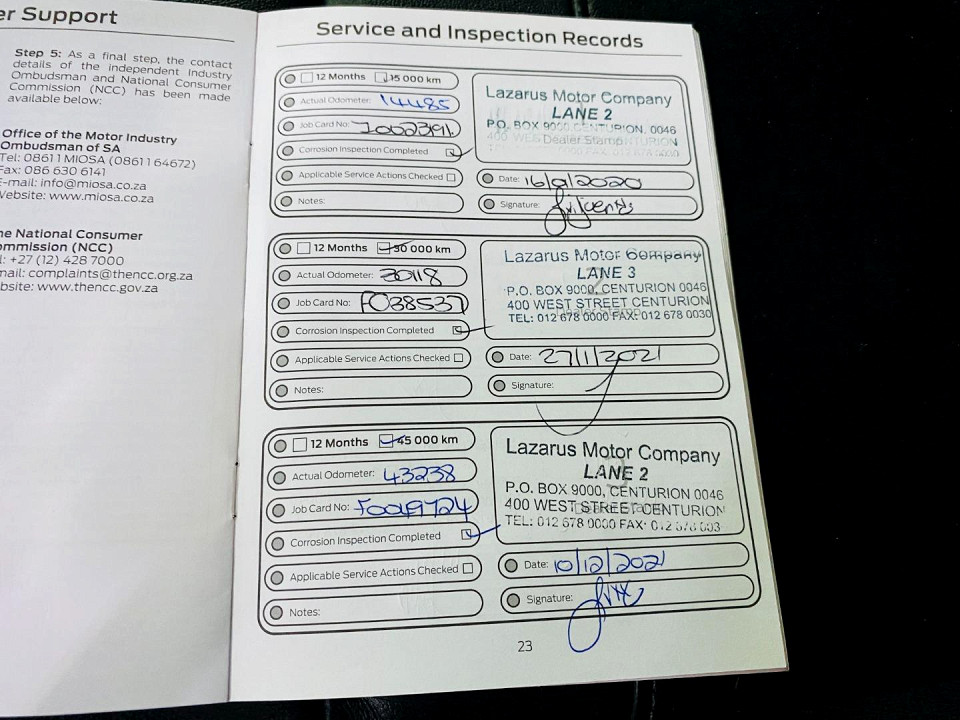 er Support
Step 5: As a final step, the contact
details of the independent Industry
Ombudsman and National Consumer
Commission (NCC) has been made
available below:
Office of the Motor Industry
Ombudsman of SA
Tel: 08611 MIOSA (0861164672)
Fax: 086 630 6141
E-mail: info@miosa.co.za
Website: www.miosa.co.za
he National Consumer
ommission (NCC)
l: +27 (12) 428 7000
mail: complaints@thencc.org.za
bsite: www.thencc.gov.za
Service and Inspection Records
12 Months 15 000 km
Actual Odometer: 14485
Job Card No:
Corrosion Inspection Completed
Applicable Service Actions Checked
Notes:
Lazarus Motor Company
LANE 2
P.O. BOX 9000 CENTURION. 0046
Dealer Stamp
Date: 16/9/2020
Signature:
12 Months 30 000 km
Actual Odometer: 30118
Job Card No: F038537
Corrosion Inspection Completed
Applicable Service Actions Checked
Notes:
Lazarus Motor Company
LANE 3
P.O. BOX 9000, CENTURION 0046
400 WEST STREET CENTURION
TEL: 012 678 0000 FAX: 012 678 0030
Date: 27/1/2021
Signature:
12 Months 45 000 km
Actual Odometer: 43238
Job Card No: F0049724
Corrosion Inspection Completed
Applicable Service Actions Checked
Notes:
Lazarus Motor Company
LANE 2
P.O. BOX 9000, CENTURION 0046
400 WEST STREET CENTURION
TEL: 012 678 0000 FAX:
Date: 10/12/2021
Signature:
23